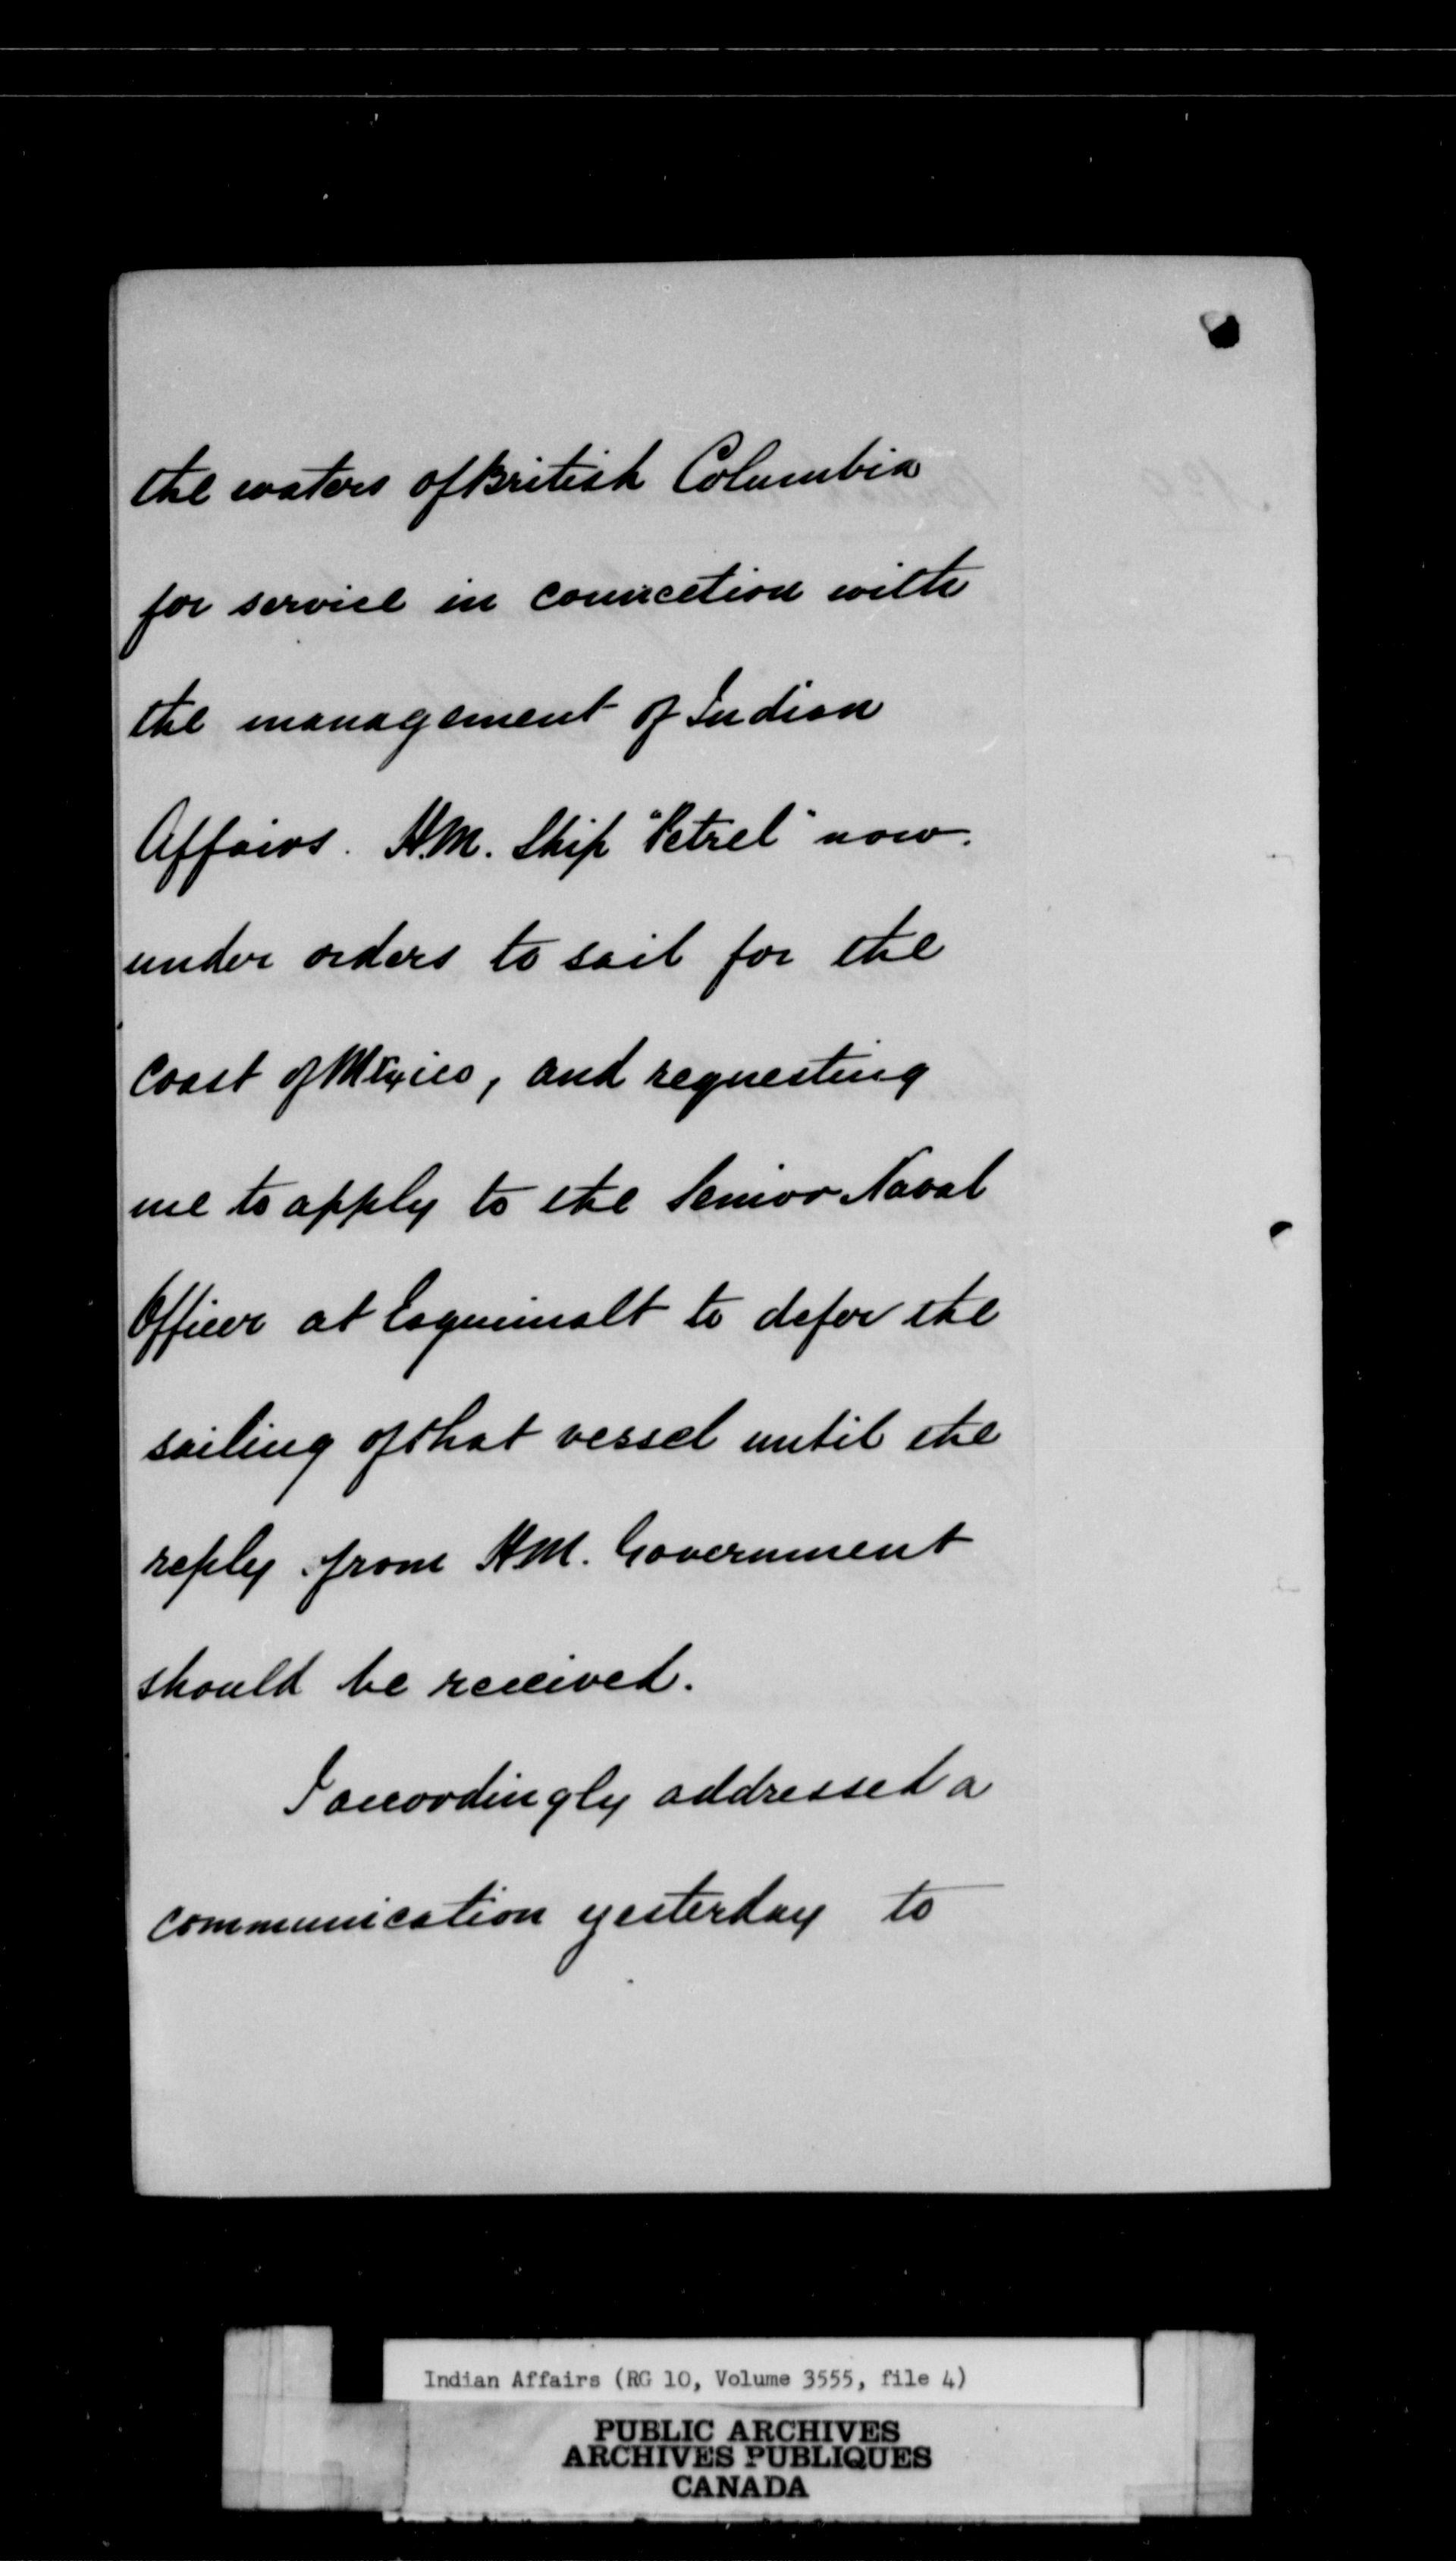 the waters of British Columbia
for service in connection with
the management of Indian
Affairs. H.M. Ship "Petrel" now
under orders to sail for the
Coast of Mexico, and requesting
me to apply to the Senior Naval
Officer at Esquimalt to defer the
sailing of that vessel until the
reply from H.M. Government
should be received.
I accordingly addressed a
communication yesterday to
Indian Affairs (RG 10, Volume 3555, file 4)
PUBLIC ARCHIVES
ARCHIVES PUBLIQUES
CANADA